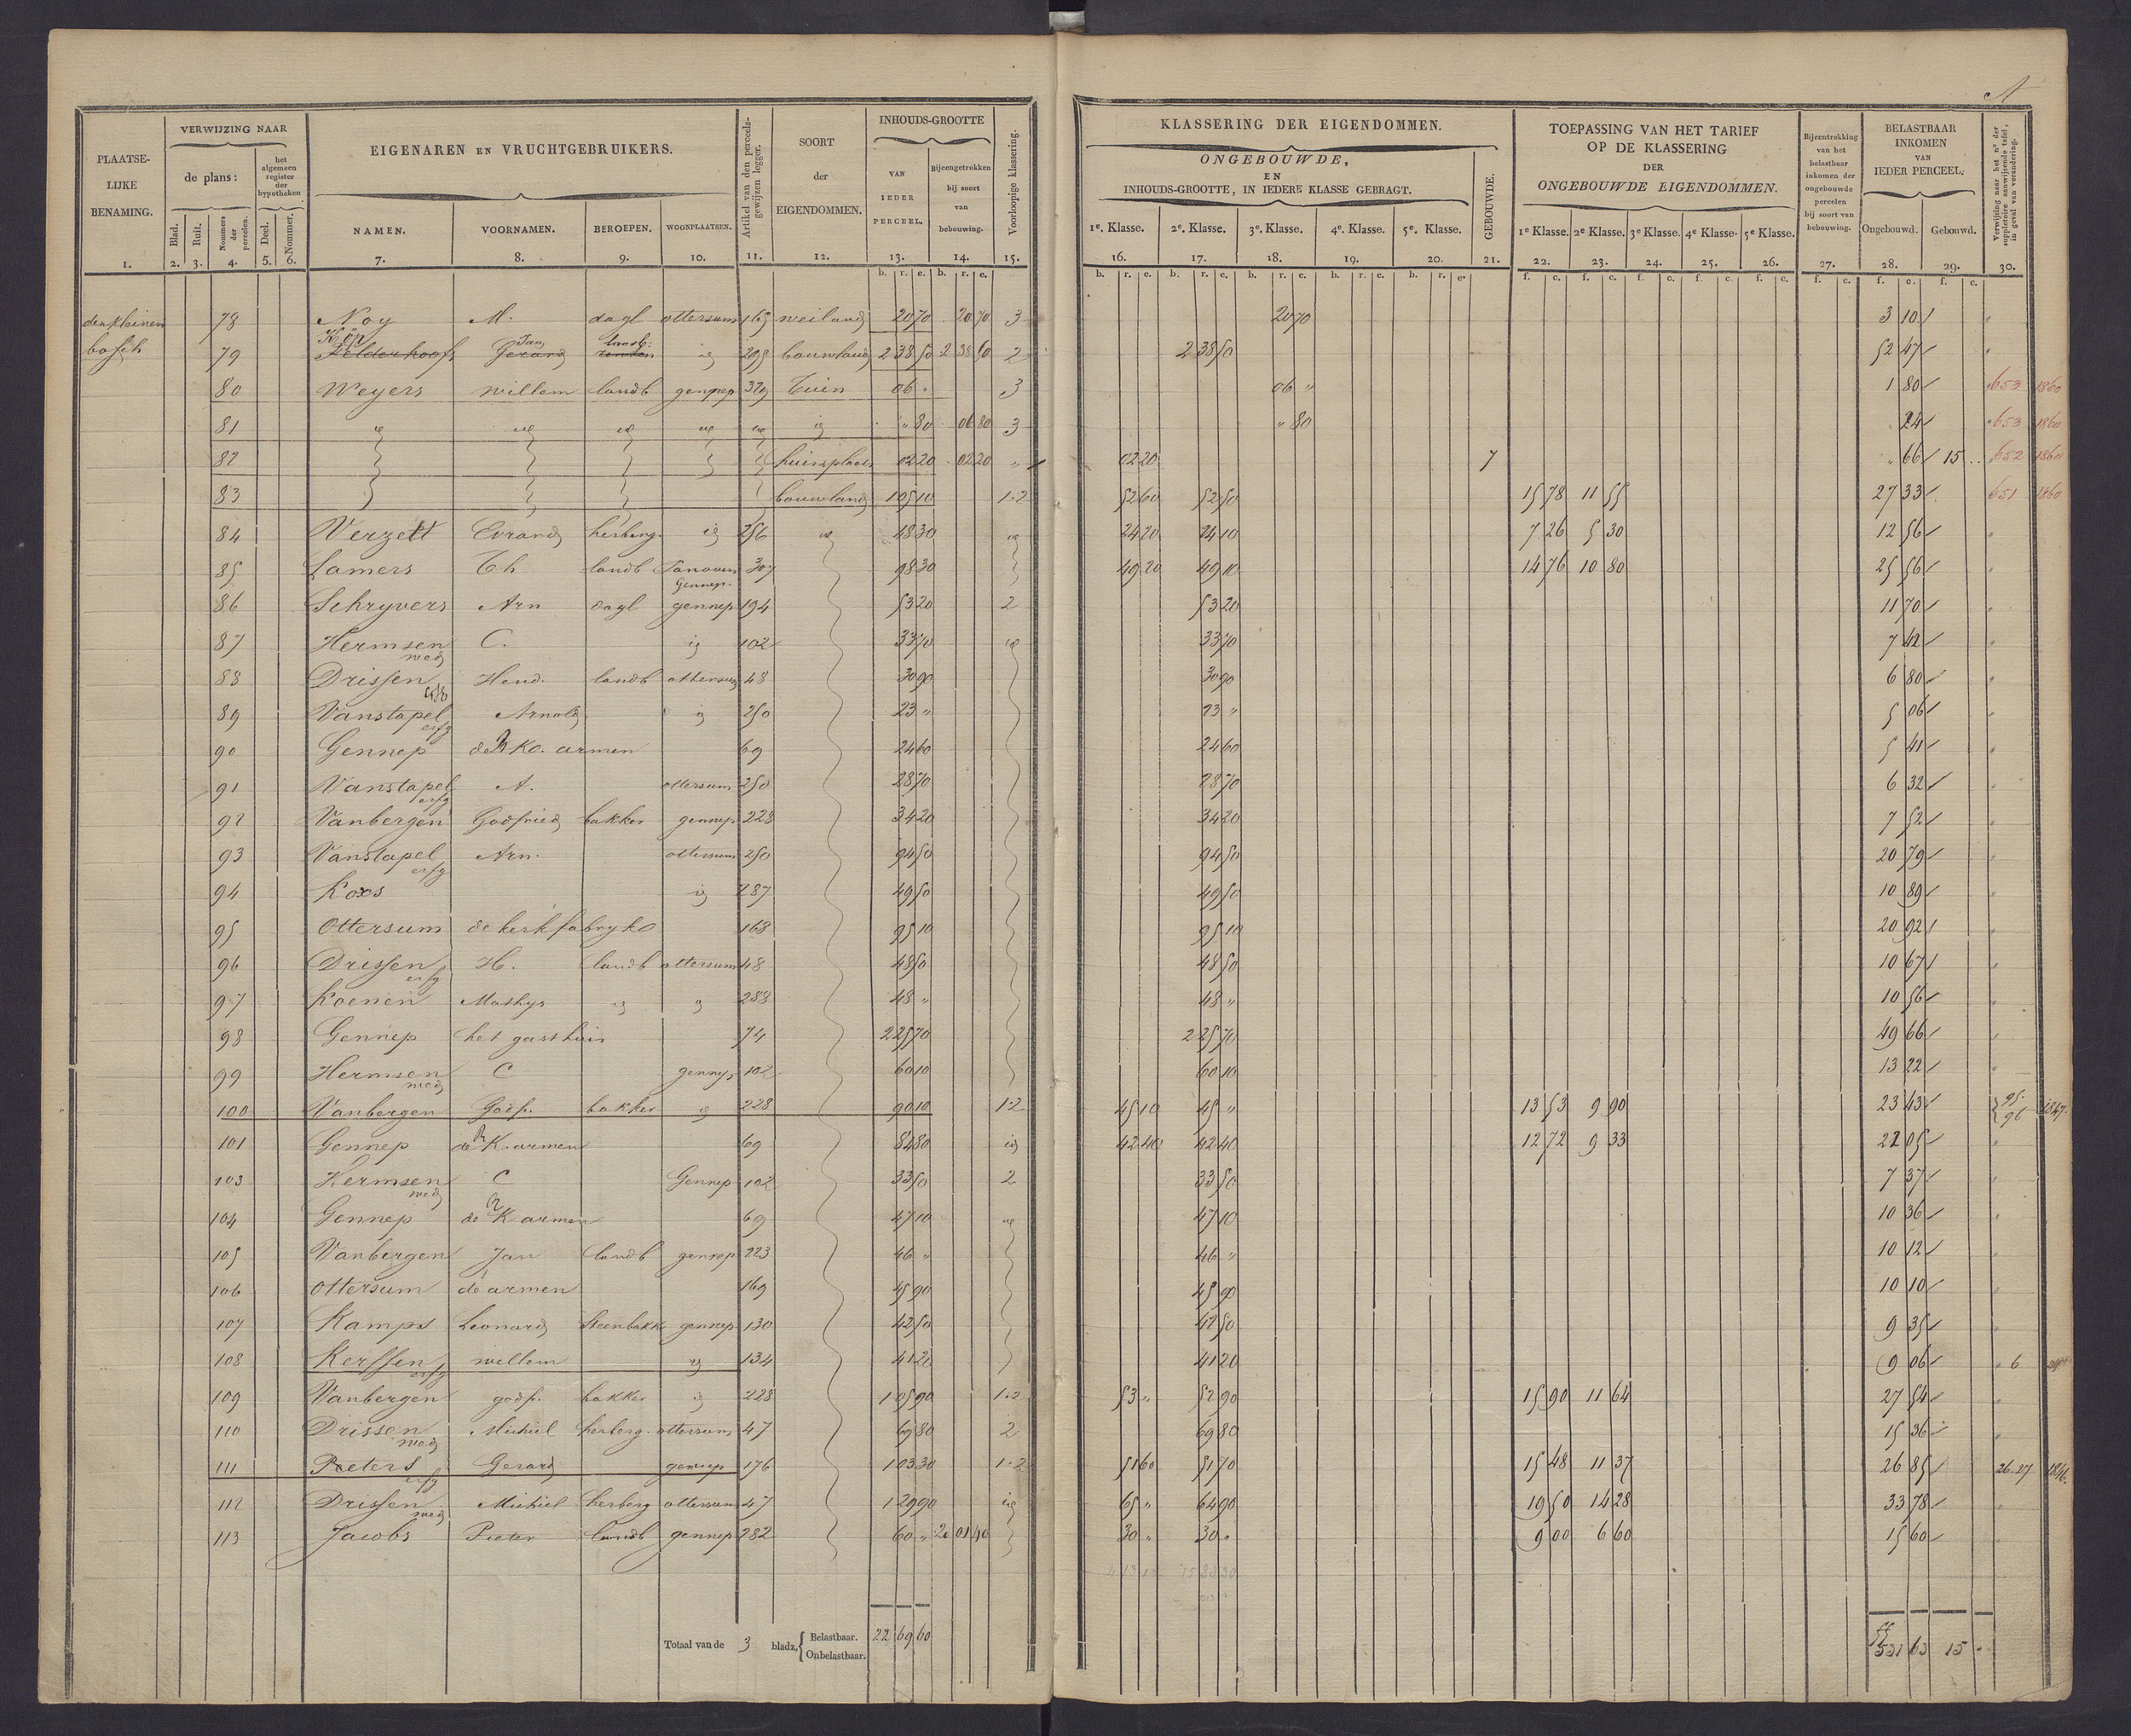 A
PLAATSE-
LIJKE
BENAMING.
VERWIJZING NAAR
de plans:
het algemeen register der hypotheken
Blad. Ruit. Nommers der perceelen. Deel. Nommer.
EIGENAREN EN VRUCHTGEBRUIKERS.
NAMEN. VOORNAMEN. BEROEPEN. WOONPLAATSEN.
Artikel van den perceels-gewijzen legger.
SOORT
der
EIGENDOMMEN.
INHOUDS-GROOTTE
VAN IEDER PERCEEL. Bijeengetrokken bij soort van bebouwing.
Voorloopige klassering.
KLASSERING DER EIGENDOMMEN.
ONGEBOUWDE,
EN
INHOUDS-GROOTTE, IN IEDERE KLASSE GEBRAGT.
1e. Klasse. 2e. Klasse. 3e. Klasse. 4e. Klasse. 5e. Klasse. GEBOUWDE.
TOEPASSING VAN HET TARIEF
OP DE KLASSERING
DER
ONGEBOUWDE EIGENDOMMEN.
1e Klasse. 2e Klasse. 3e Klasse. 4e Klasse. 5e Klasse.
Bijeentrekking van het belastbaar inkomen der ongebouwde perceelen bij soort van bebouwing.
BELASTBAAR
INKOMEN
VAN
IEDER PERCEEL.
Ongebouwd. Gebouwd.
Verwijzing naar het no der suppletoire aanwijzende tafel, in geval van verandering.
1. 2. 3. 4. 5. 6. 7. 8. 9. 10. 11. 12. 13. 14. 15. 16. 17. 18. 19. 20. 21. 22. 23. 24. 25. 26. 27. 28. 29. 30.
den kleinen 78 Noy M. dagl ottersum 165 weiland 20 70 20 70 3 20 70 3 10
bosch 79 Kelderhoofs Gerard Jan landb: id 298 bouwland 2 38 50 2 38 50 2 2 38 50 52 47
80 Weyers willem landb gennep 329 Tuin 06 " 3 06 " 1 80 653 1860
81 id id id id id id " 80 06 80 3 " 80 24 653 1860
82 huisplaats 02 20 02 20 " 02 20 7 " 66 15 652 1860
83 bouwland 1 05 10 1.2 52 60 52 50 15 78 11 55 27 33 651 1860
84 Verzett Evrard herberg. id 256 id 48 30 id 24 20 24 10 7 26 5 30 12 56
85 Lamers Th landb Gennep 307 98 30 49 20 49 10 14 76 10 80 25 56
86 Schryvers Arn dagl gennep 194 53 20 2 53 20 11 70
87 Hermsen wed C. id 102 33 70 id 33 70 7 42
88 Drissen Hend. landb ottersum 48 30 90 30 90 6 80
89 Vanstapel erfg Arnold id 250 23 " 23 " 5 06
90 Gennep de RK. armen 69 24 60 24 60 5 41
91 Vanstapel erfg A. ottersum 250 28 70 28 70 6 32
92 Vanbergen Godfried bakker gennep 228 34 20 34 20 7 52
93 Vanstapel erfg Arn. ottersum 250 94 50 94 50 20 79
94 Koxs id 287 49 50 49 50 10 89
95 Ottersum de kerkfabryke 168 95 10 95 10 20 92
96 Drissen erfg H. landb ottersum 48 48 50 48 50 10 67
97 Koenen Mathys id id 288 48 " 48 " 10 56
98 Gennep het gasthuis 74 2 25 70 2 25 70 49 66
99 Hermsen wed C gennep 102 60 10 60 10 13 22
100 Vanbergen Godf. bakker id 228 90 10 1.2 45 10 45 " 13 53 9 90 23 43 95. 96 1847.
101 Gennep de RK. armen 69 84 80 id 42 40 42 40 12 72 9 33 22 05
103 Hermsen wed C Gennep 102 33 50 2 33 50 7 37
104 Gennep de RK armen 69 47 10 id 47 10 10 36
105 Vanbergen Jan landb gennep 223 46 " 46 " 10 12
106 ottersum de armen 169 45 90 45 90 10 10
107 Kamps Leonard steenbakk gennep 130 42 50 42 50 9 35
108 Kerssen erfg willem id 134 41 20 41 20 9 06 6
109 Vanbergen godf. bakker id 228 1 05 90 1.2 53 " 52 90 15 90 11 64 27 54
110 Drissen wed Michiel herberg. ottersum 47 69 80 2 69 80 15 36
111 Peeters erfg Gerard gennep 176 1 03 30 1.2 51 60 51 70 15 48 11 37 26 85 26.27 1846.
112 Drissen wed Michiel herberg ottersum 47 1 29 90 id 65 " 64 90 19 50 14 28 33 78
113 Jacobs Pieter landb gennep 282 60 " 20 01 40 30 " 30 " 9 00 6 60 15 60
Totaal van de 3 bladz. Belastbaar. 22 69 60 531 63 15 -
Onbelastbaar.